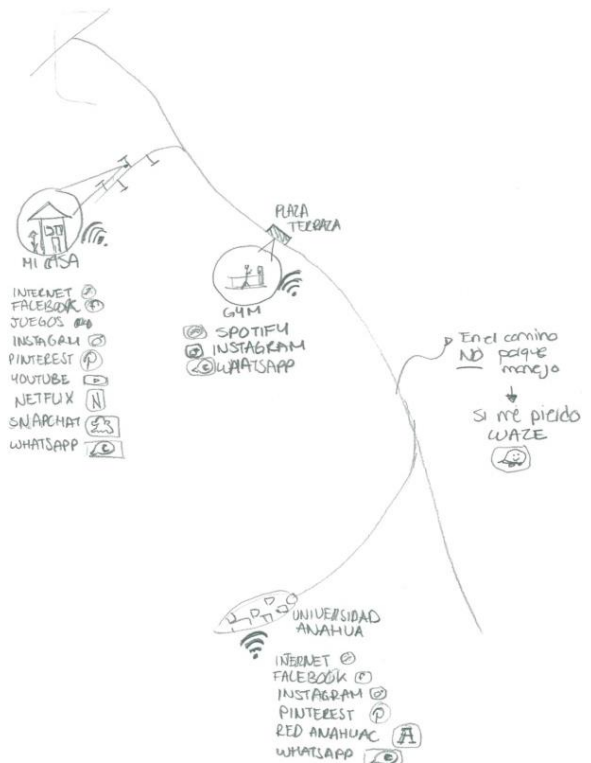 MI CASA
INTERNET
FACEBOOK
JUEGOS
INSTAGRAM
PINTEREST
YOUTUBE
NETFLIX N
SNAPCHAT
WHATSAPP
PLAZA
TERRAZA
GYM
SPOTIFY
INSTAGRAM
WHATSAPP
En el camino
NO porque
manejo
Si me pierdo
WAZE
UNIVERSIDAD
ANAHUA
INTERNET
FACEBOOK
INSTAGRAM
PINTEREST
RED ANAHUAC
WHATSAPP